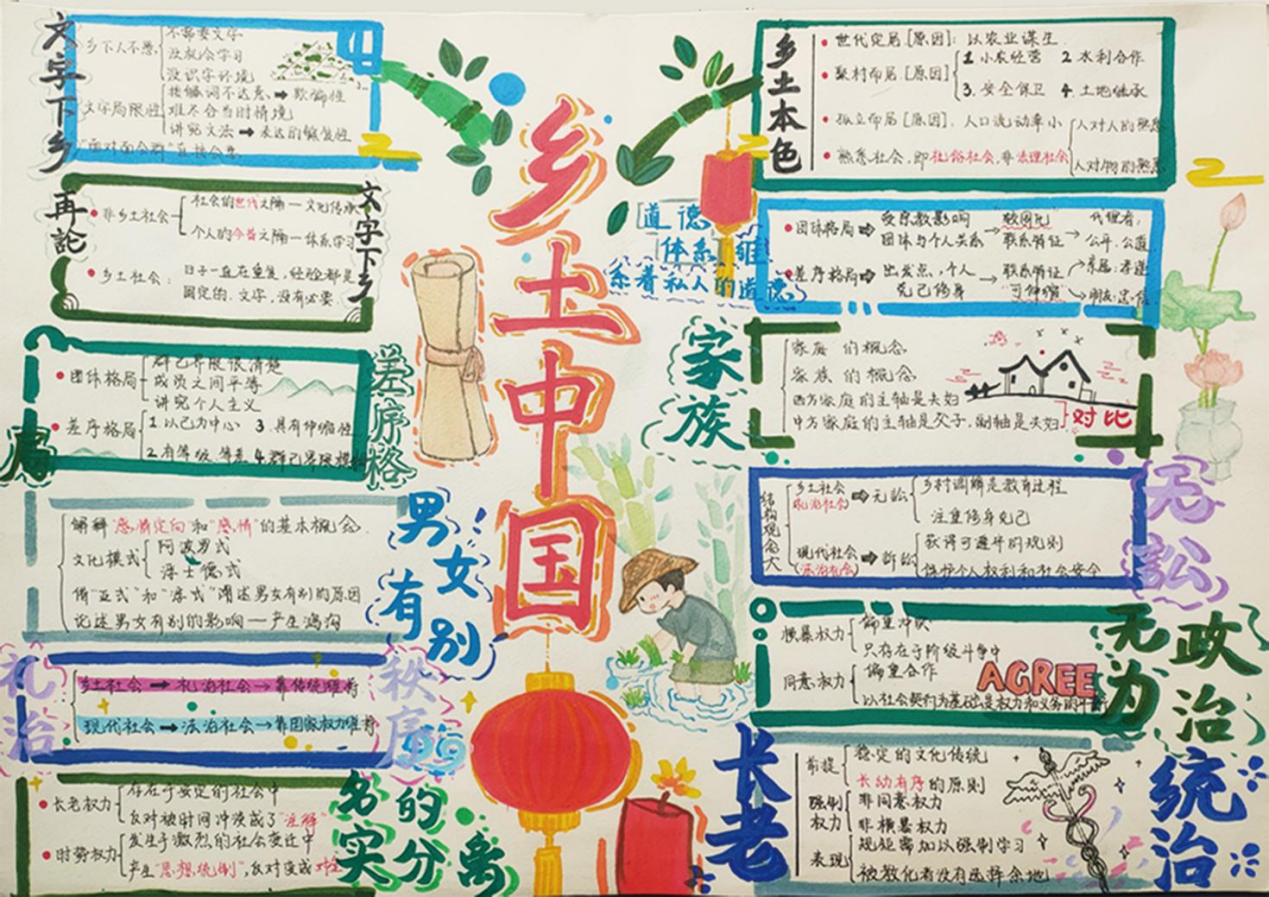 文字下乡
乡下人不愚
不需要文字
没机会学习
没识字环境
文字局限性
词不达意 → 欺骗性
难不合当时情境
讲究文法 → 表达的
"面对面会群"直接会意
再论
文字下乡
非乡土社会
社会的世代之隔—文化传承
个人的今昔之隔—体系学习
乡土社会:
日子一直在重复,经验都是
固定的,文字,没有必要
差序格局
团体格局
群己界限很清楚
成员之间平等
讲究个人主义
差序格局
1 以己为中心 3.具有伸缩性
2.有等级 等差 4.群己界限模糊
男女有别!
解释"感情定向"和"感情"的基本概念
文化模式
阿波罗式
浮士德式
论述男女有别的影响—产生鸿沟
礼治
秩序
乡土社会 → 礼治社会 → 靠传统维持
现代社会 → 法治社会 → 靠国家权力维持
长老权力
存在于安定的社会中
反对被时间冲淡成了"注释"
时势权力
发生于激烈的社会变迁中
产生"思想统制",反对变成对
名实的分离
乡土中国
乡土本色
世代定居[原因]:以农业谋生
聚村而居[原因]
1 小农经营 2 水利合作
3.安全保卫 4.土地继承
孤立而居[原因].人口流动率小
人对人的熟悉
人对物的熟悉
熟悉社会,即礼俗社会,非法理社会
道德
体系 维
系着私人的道德
团体格局
受宗教影响
团体与个人关系
联系特征
代理者:
公平.公道
差序格局
出发点,个人
克己修身
联系特征
可伸缩
亲属:孝悌
朋友:忠信
家族
家庭 的概念
家族 的概念
西方家庭的主轴是夫妇
中方家庭的主轴是父子,副轴是夫妇
对比
无讼
结构观念大
乡土社会
(礼治社会)
无讼
乡村调解是教育过程
注重修身克己
现代社会
(法治社会)
诉讼
获得可遵守的规则
保护个人权利和社会安全
无为政治
横暴权力
偏重冲突
只存在于阶级斗争中
同意权力
偏重合作
以社会契约为基础是权力和义务的平衡
AGREE
长老统治
前提
稳定的文化传统
长幼有序的原则
强制权力
非同意权力
非横暴权力
表现
规矩需加以强制学习
被教化者没有选择余地